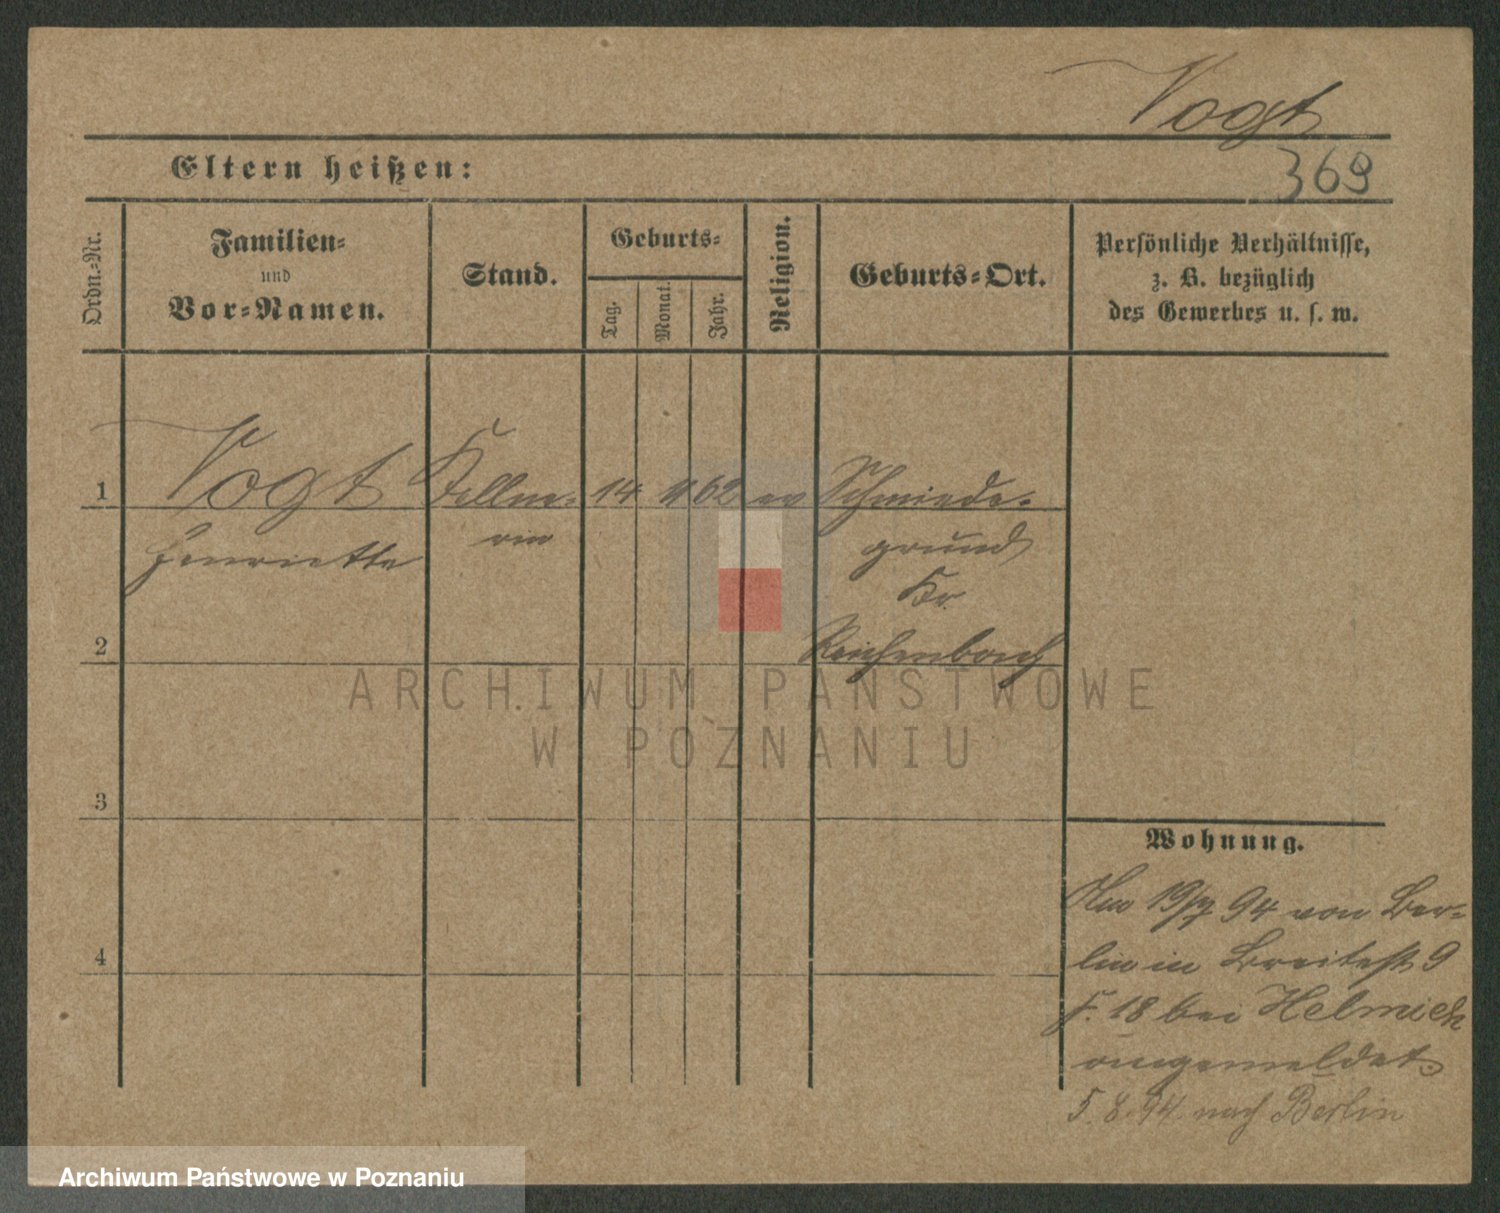 Vogt
Eltern heißen:
369
Ordn.=Nr.
Familien=
und
Vor=Namen.
Stand.
Geburts=
Tag.
Monat.
Jahr.
Religion.
Geburts=Ort.
Persönliche Verhältnisse,
z. B. bezüglich
des Gewerbes u. s. w.
1 Vogt Kellne= 14 62 ev Schmiede=
Henriette rin grund
Kr.
2 Reichenbach
ARCHIWUM PAŃSTWOWE
W POZNANIU
3
Wohnung.
Am 19/7 94 von Ber=
4 lin in Breitestr 9
F. 18 bei Helmich
angemeldet.
5.8.94. nach Berlin
Archiwum Państwowe w Poznaniu